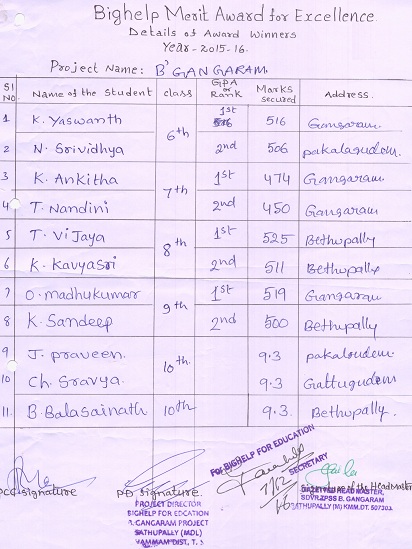 Bighelp Merit Award for Excellence.
Details of Award Winners
Year - 2015-16.
Project Name: B' GANGARAM.
Sl No. Name of the Student class GPA or Rank Marks secured Address.
1 K. Yaswanth 6th 1st 516 Gangaram.
2 N. Srividhya 2nd 506 pakalagudem.
3 K. Ankitha 7th 1st 474 Gangaram
4 T. Nandini 2nd 450 Gangaram
5 T. Vijaya 8th 1st 525 Bethupally
6 K. Kavyasri 2nd 511 Bethupally
7 O. madhukumar 9th 1st 519 Gangaram
8 K. Sandeep 2nd 500 Bethupally
9 J. praveen. 10th. 9.3 pakaloudem.
10 Ch. Sravya. 9.3 Gattugudem
11. B. Balasainath 10th 9.3. Bethupally.
PCG signature PD signature.
PROJECT DIRECTOR
BIGHELP FOR EDCATION
GANGARAM PROJECT
SATHUPALLY (MDL)
FOR BIGHELP FOR EDUCATION
SECRETARY
signature of the HeadMaster
GAZETTED HEAD MASTER,
SDVRZPSS B. GANGARAM
SATHUPALLY (M) KMM.DT. 507303